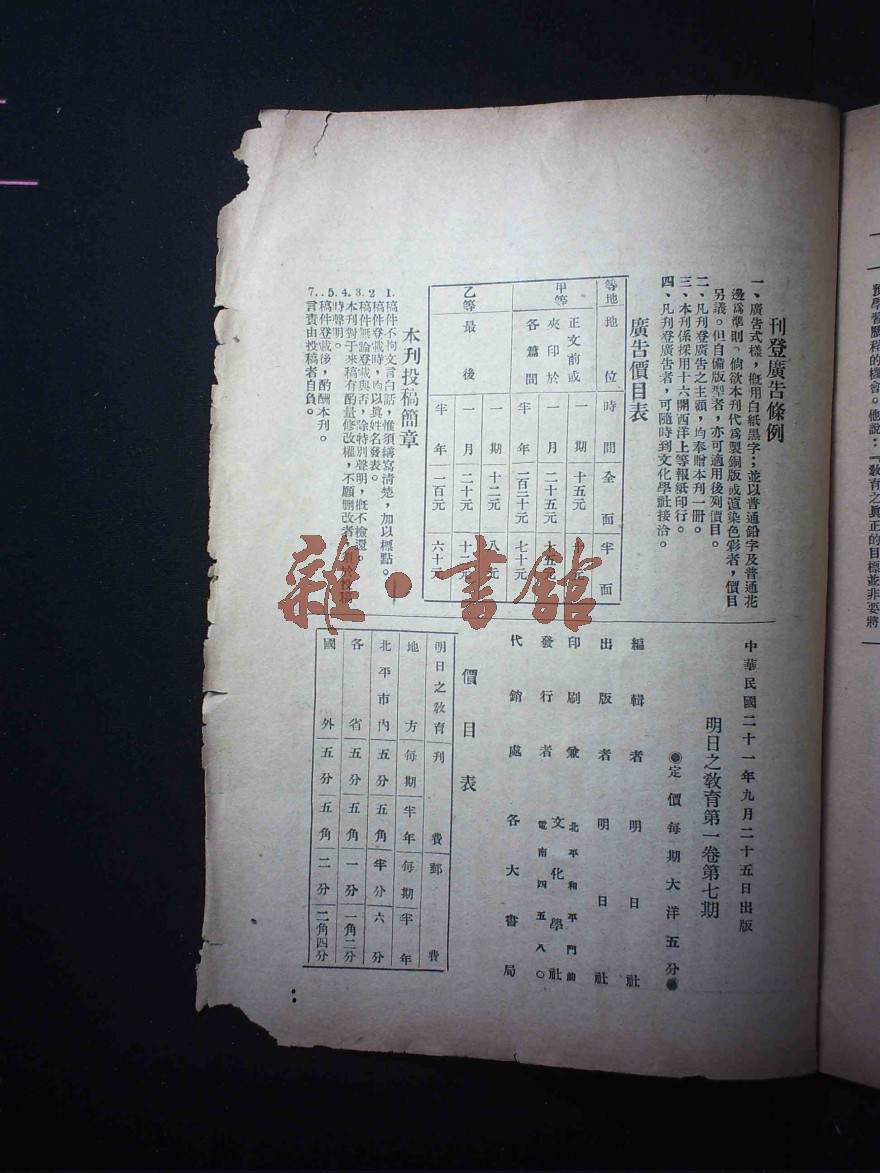 刊登廣告條例
一、廣告式樣，概用白紙黑字；並以普通鉛字及普通花
邊爲準則。倘欲本刊代爲製銅版或渲染色彩者，價目
另議。但自備版型者，亦可適用後列價目。
二、凡刊登廣告之主顧，均奉贈本刊一冊。
三、本刊係採用十六開西洋上等報紙印行。
四、凡刊登廣告者，可隨時到文化學社接洽。
廣告價目表
等地 地位 時間 全面 半面
甲等 正文前或夾印於各篇間 一期 十五元 十元
一月 二十五元 十五元
半年 一百二十元 七十元
乙等 最後 一期 十二元 八元
一月 二十元 十二元
半年 一百元 六十元
本刊投稿簡章
1.稿件不拘文言白話，惟須繕寫清楚，加以標點。
2.稿件登載時，均以眞姓名發表。
3.稿件無論登載與否，除特別聲明，概不檢還。
4.本刊對于來稿有酌量修改權，不願刪改者，須於投稿
時聲明。
5.稿件登載後，酌酬本刊。
7.言責由投稿者自負。
中華民國二十一年九月二十五日出版
明日之教育第一卷第七期
●定價每期大洋五分●
編輯者 明日社
出版者 明日社
印刷兼發行者 文化學社
北平和平門前
電南四五八〇
代銷處 各大書局
價目表
明日之教育 刊費 郵費
地方 每期 半年 每期 半年
北平市內 五分 五角 半分 六分
各省 五分 五角 一分 一角二分
國外 五分 五角 二分 二角四分
雜·書館
預學習歷程的機會。他說：「教育之眞正的目標並非要將